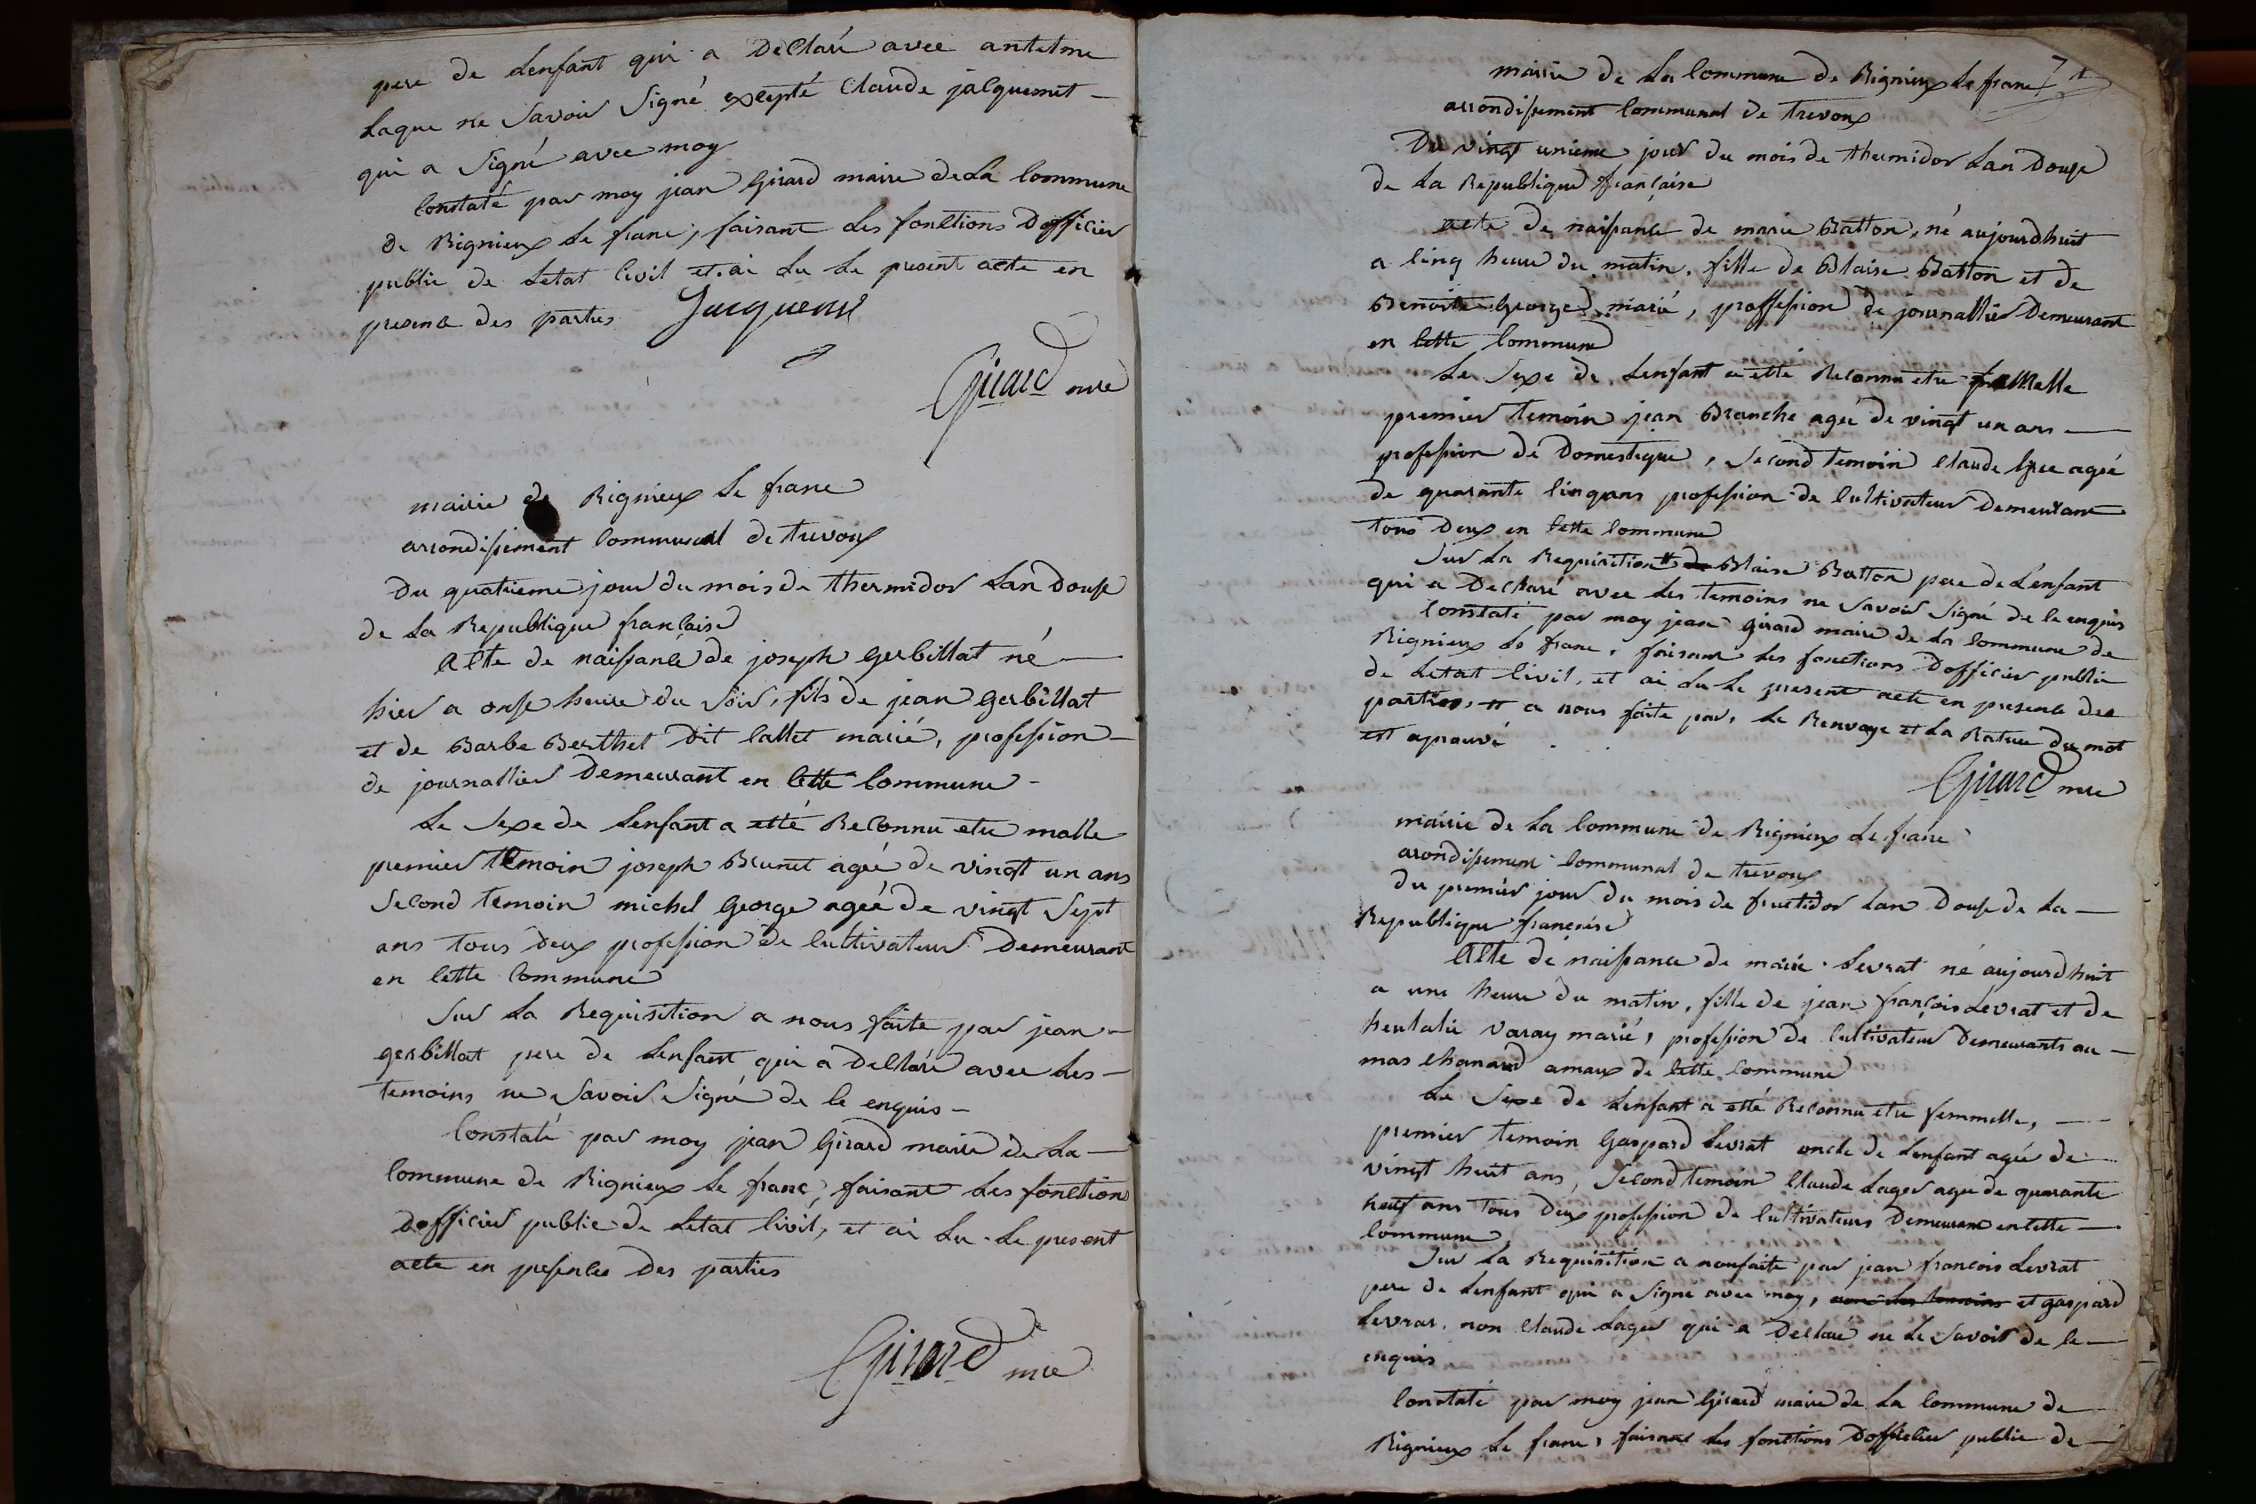 pere de Lenfant qui a Declaré avec antelme
Laque ne Savoir Signé excepté Claude jacquemet
qui a Signé avec moy
Constaté par moy jean Girard maire de La Commune
de Rignieux Le franc, faisant Les fonctions Dofficier
public de Letat Civil et ai Lu Le present acte en
presence des parties Jacquemet
Girard mre
mairie de Rignieux Le franc
arrondissement Communal de trevoux
Du quatrieme jour du mois de thermidor Lan Douse
de La Republique francaise
acte de naissance de joseph Gerbillat né
hier a onse heure du Soir, fils de jean Gerbillat
et de Barbe Berthet Dit Callet marié, profession
de journallier Demeurant en Cette Commune
Le Sexe de Lenfant a etté Reconnu etre malle
premier temoin joseph Brunet ageé de vingt un ans
Second temoin michel George ageé de vingt Sept
ans tous Deux profession de Cultivateur Demeurant
en Cette Commune
Sur La Requisition a nous faite par jean
Gerbillat pere de Lenfant qui a Declaré avec Les
temoins ne Savoir Signé de Ce enquis
Constaté par moy jean Girard maire de La
Commune de Rignieux Le franc, faisant Les fonction
Dofficier public de Letat Civil, et ai Lu Le present
acte en presence Des parties
Girard mre
mairie de La Commune de Rignieux Le franc
arrondissement Communal de trevoux
Du vingt unieme jour du mois de thermidor Lan Douse
de La Republique francaise
acte de naissance de marie Batton, né aujourdhuit
a Cinq heure du matin, fille de Blaise Batton et de
Benoite George marié, proffession de journallier Demeurant
en Cette Commune
Le Sexe de Lenfant a etté Reconnu etre femelle
premier temoin jean Branche ageé de vingt un ans
profession de Domestique, Second temoin Claude ageé
de quarante Cinq ans profession de Cultivateur Demeurant
tous Deux en Cette Commune
Sur La Requisition # de Blaise Batton pere de Lenfant
qui a Declaré avec Les temoins ne Savoir Signé de Ce enquis
Constaté par moy jean Girard maire de La Commune de
Rignieux Le franc, faisant Les fonctions Dofficier public
de Letat Civil, et ai Lu Le present acte en presence des
parties, # a nous faite par, Le Renvoye et La Rature du mot
est aprouvé
Girard mre
mairie de La Commune de Rignieux Le franc
arondissement Communal de trevoux
Du premier jour du mois de fructidor Lan Douse de La
Republique francaise
acte de naissance de marie Levrat né aujourdhuit
a une heure du matin, fille de jean françois Levrat et de
heulalie varay marié, profession de Cultivateur Demeurants au
mas Chanard amaux de Cette Commune
Le Sexe de Lenfant a etté Reconnu etre femmelle,
premier temoin Gaspard Levrat oncle de Lenfant ageé de
vingt huit ans, Second temoin Claude Lager age de quarante
neuf ans tous Deux profession de Cultivateurs Demeurant en Cette
Commune
Sur La Requisition a nous faite par jean francois Levrat
pere de Lenfant qui a Signé avec moy, avec Les temoins et gaspard
Levrat, non Claude Lager qui a Declaré ne Le Savoir de Ce
enquis
Constaté par moy jean Girard maire de La Commune de
Rignieux Le franc, faisant Les fonctions Dofficier public de